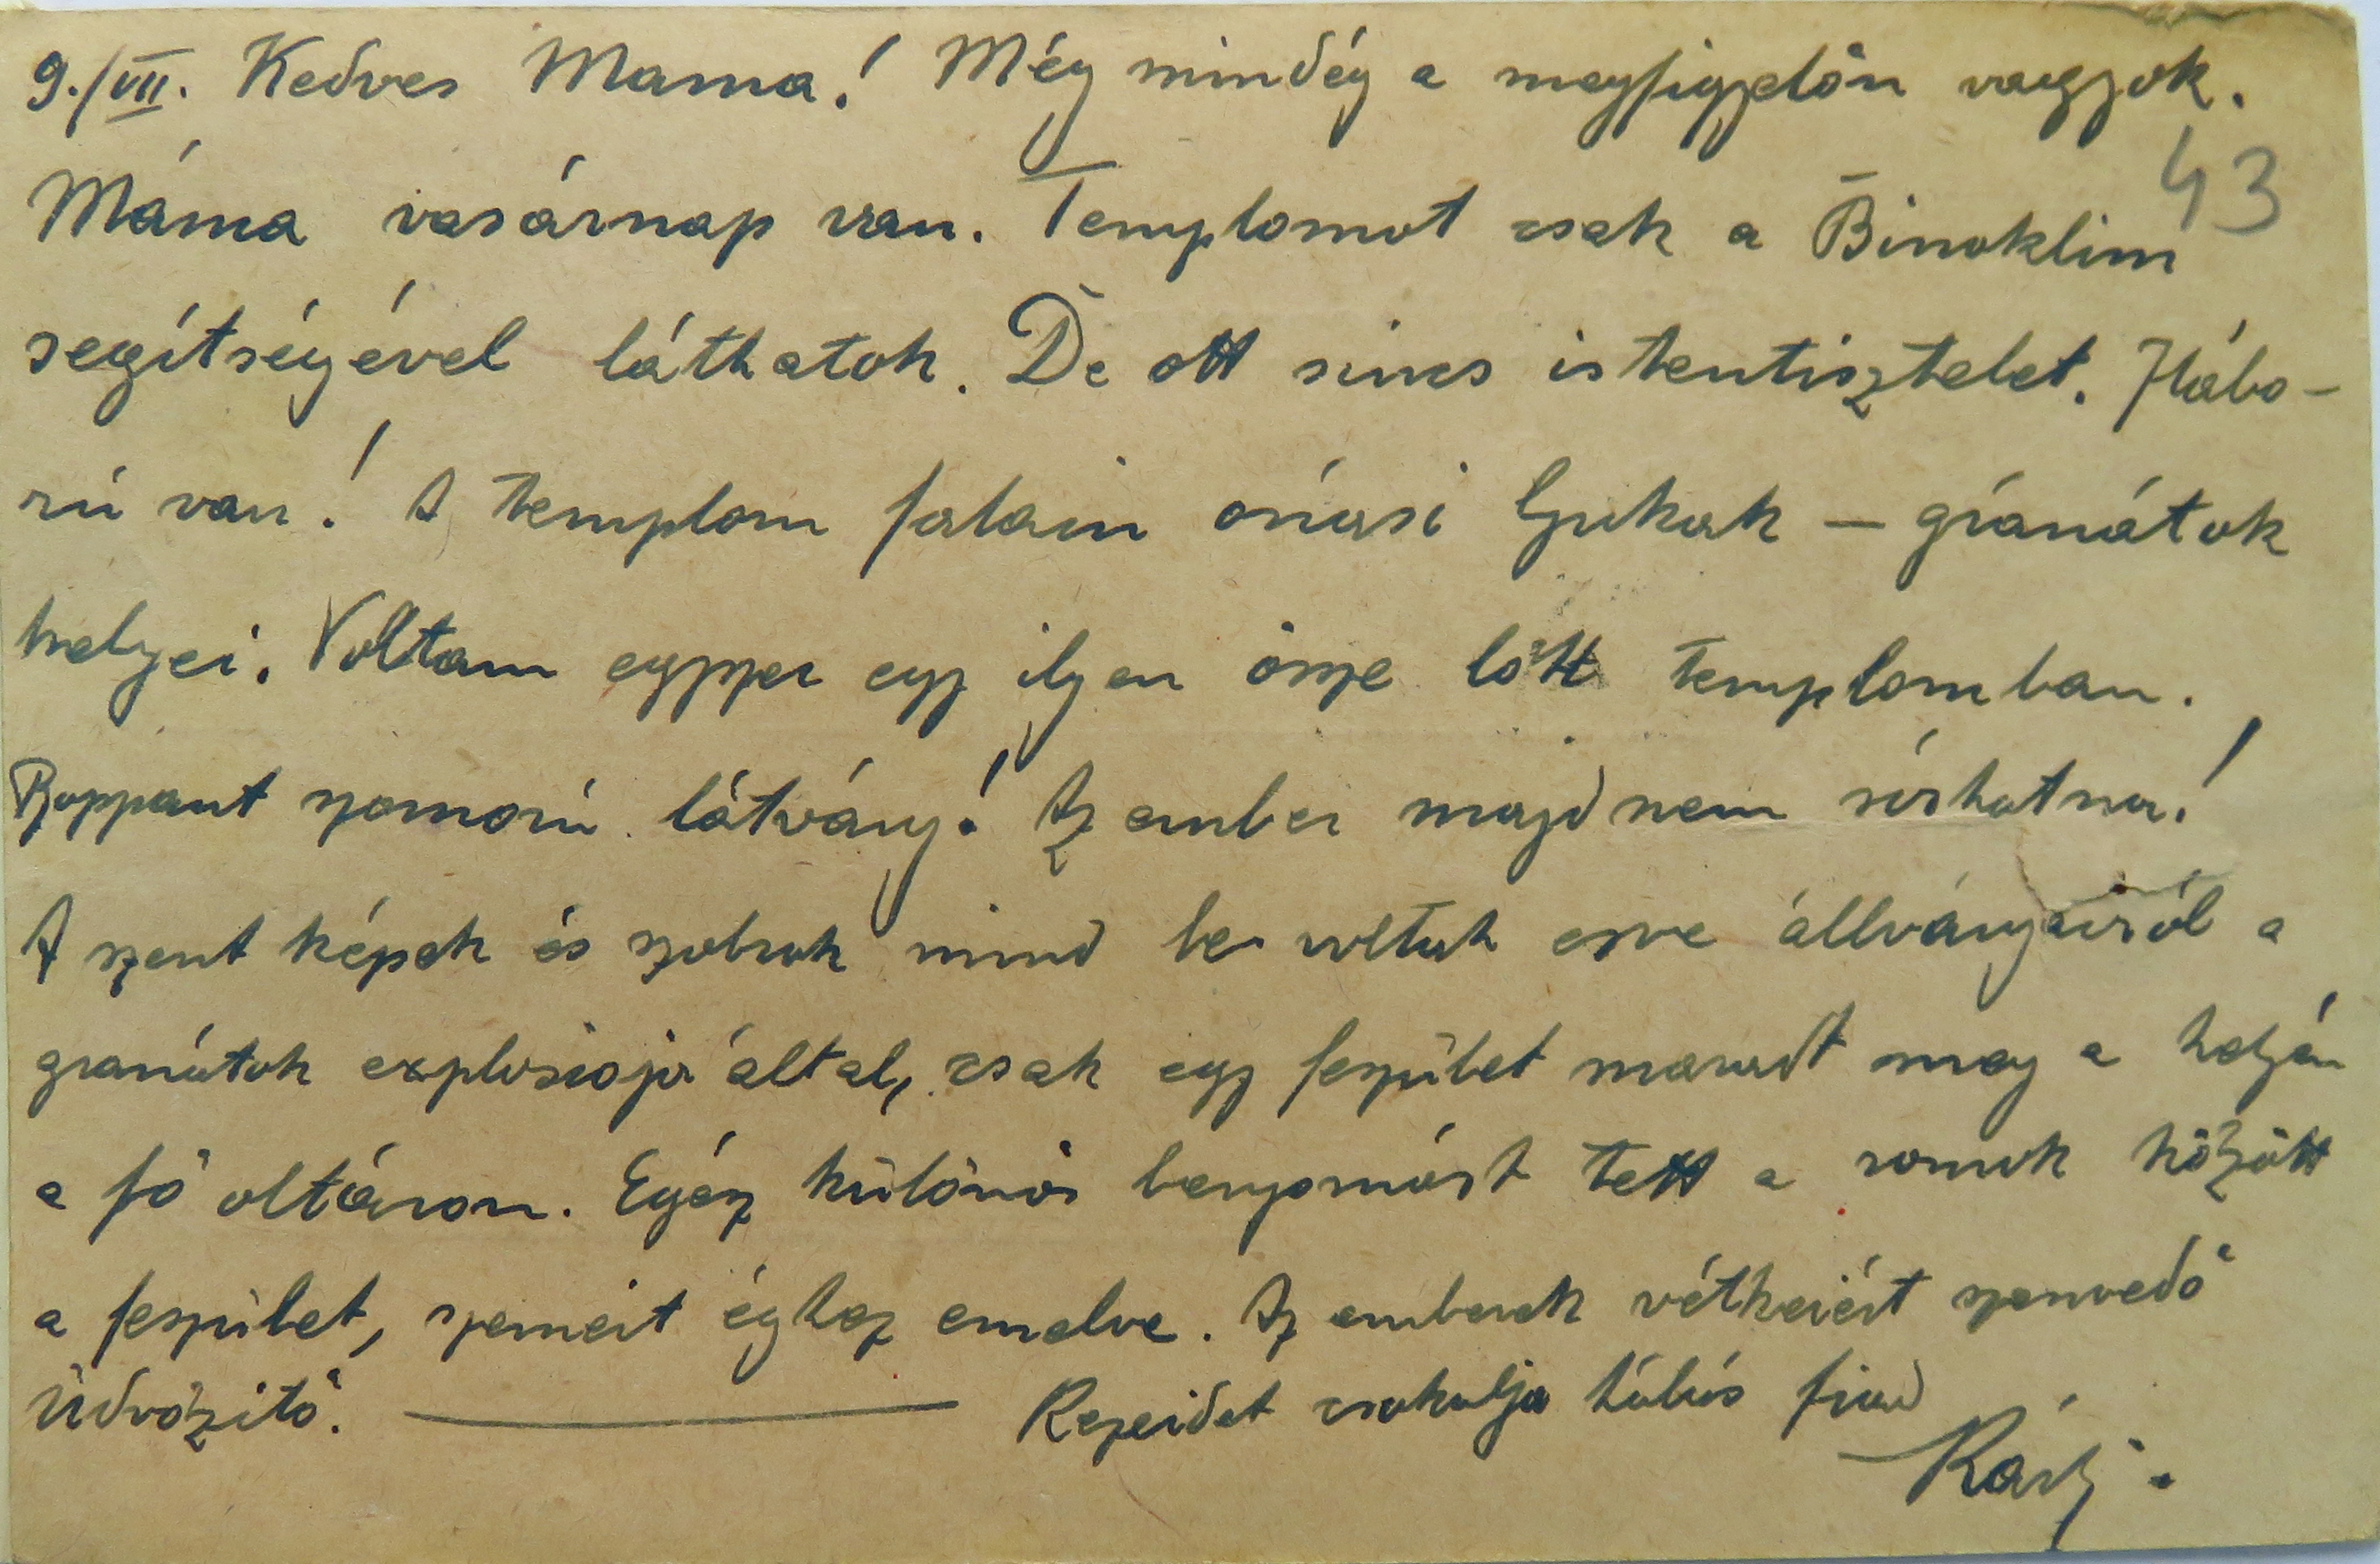 9./VII. Kedves Mama! Még mindég a megfigyelőn vagyok.
43
Máma vasárnap van. Templomot csak a Binoklim
segítségével láthatok. De ott sincs istentisztelet. Hábo-
rú van! A templom falain óriási lyukak — gránátok
helyei. Voltam egyszer egy ilyen össze lőtt templomban.
Roppant szomorú látvány! Az ember majdnem sírhatna!
A szent képek és szobrok mind le voltak esve állványairól a
gránátok explosioja által, csak egy feszület maradt meg a helyén
a fő oltáron. Egész különös benyomást tett a romok között
a feszület, szemeit éghez emelve. Az emberek vétkeiért szenvedő
Üdvözítő. ——— Kezeidet csokolja hálás fiad